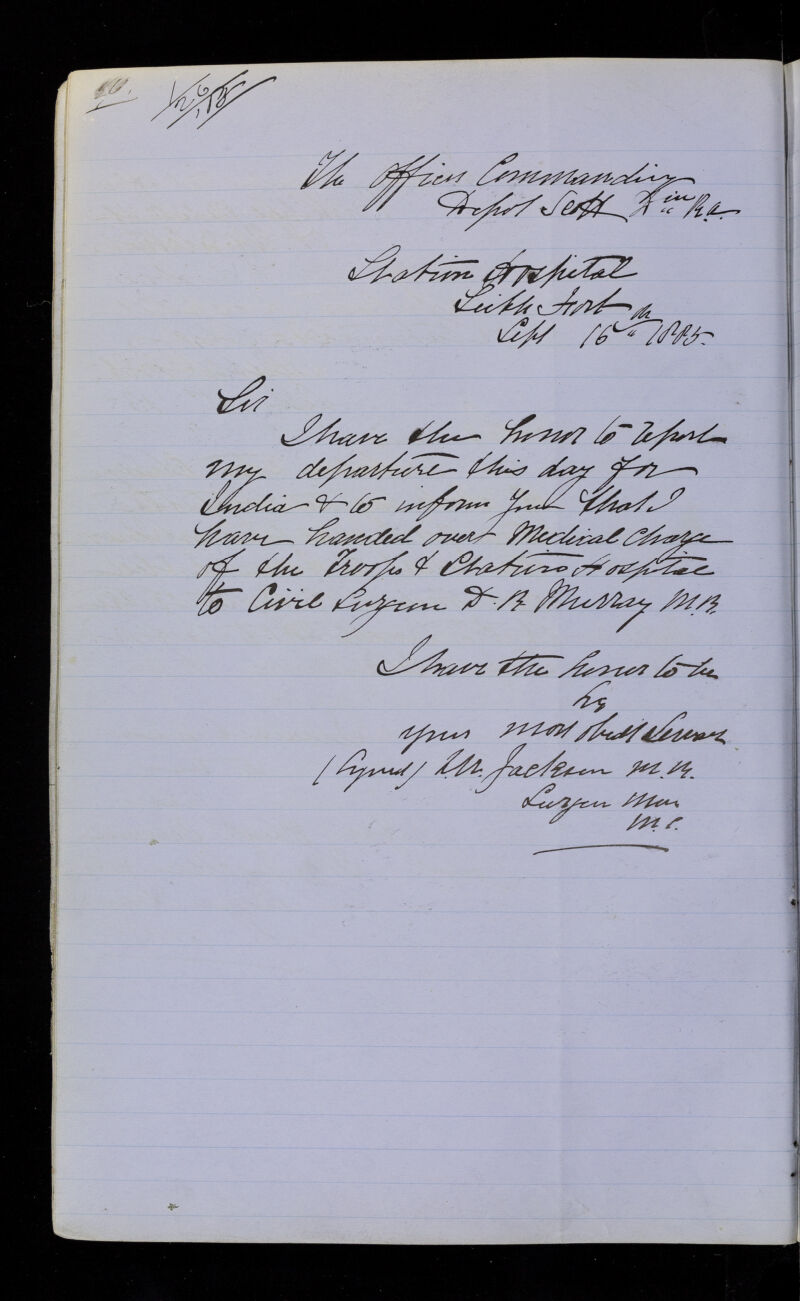 The Officer Commanding
Depot Scott Din R.A.
Station Hospital
Leith Fort
Sept 16th 1885.
Sir
I have the honor to report
my departure this day for
India & to inform you that I
have handed over Medical Charge
of the Troops & Station Hospital
to Civil Surgeon D. R. Murray M.B.
I have the honor to be
Sir
your most obedt Servant
(Signed) Jackson M.B.
Surgeon
M.S.